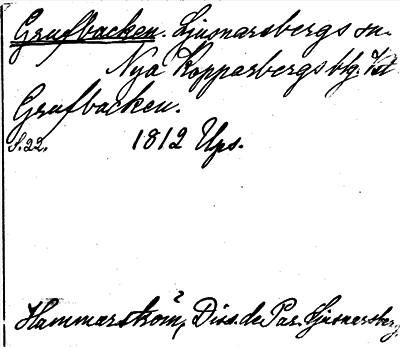 Grufbacken. Ljusnarsbergs sn.
Nya Kopparbergs blg. Vstl
Grufbacken.
S.22. 1812 Ups.
Hammarström, Diss. de Par. Ljusnarsberg